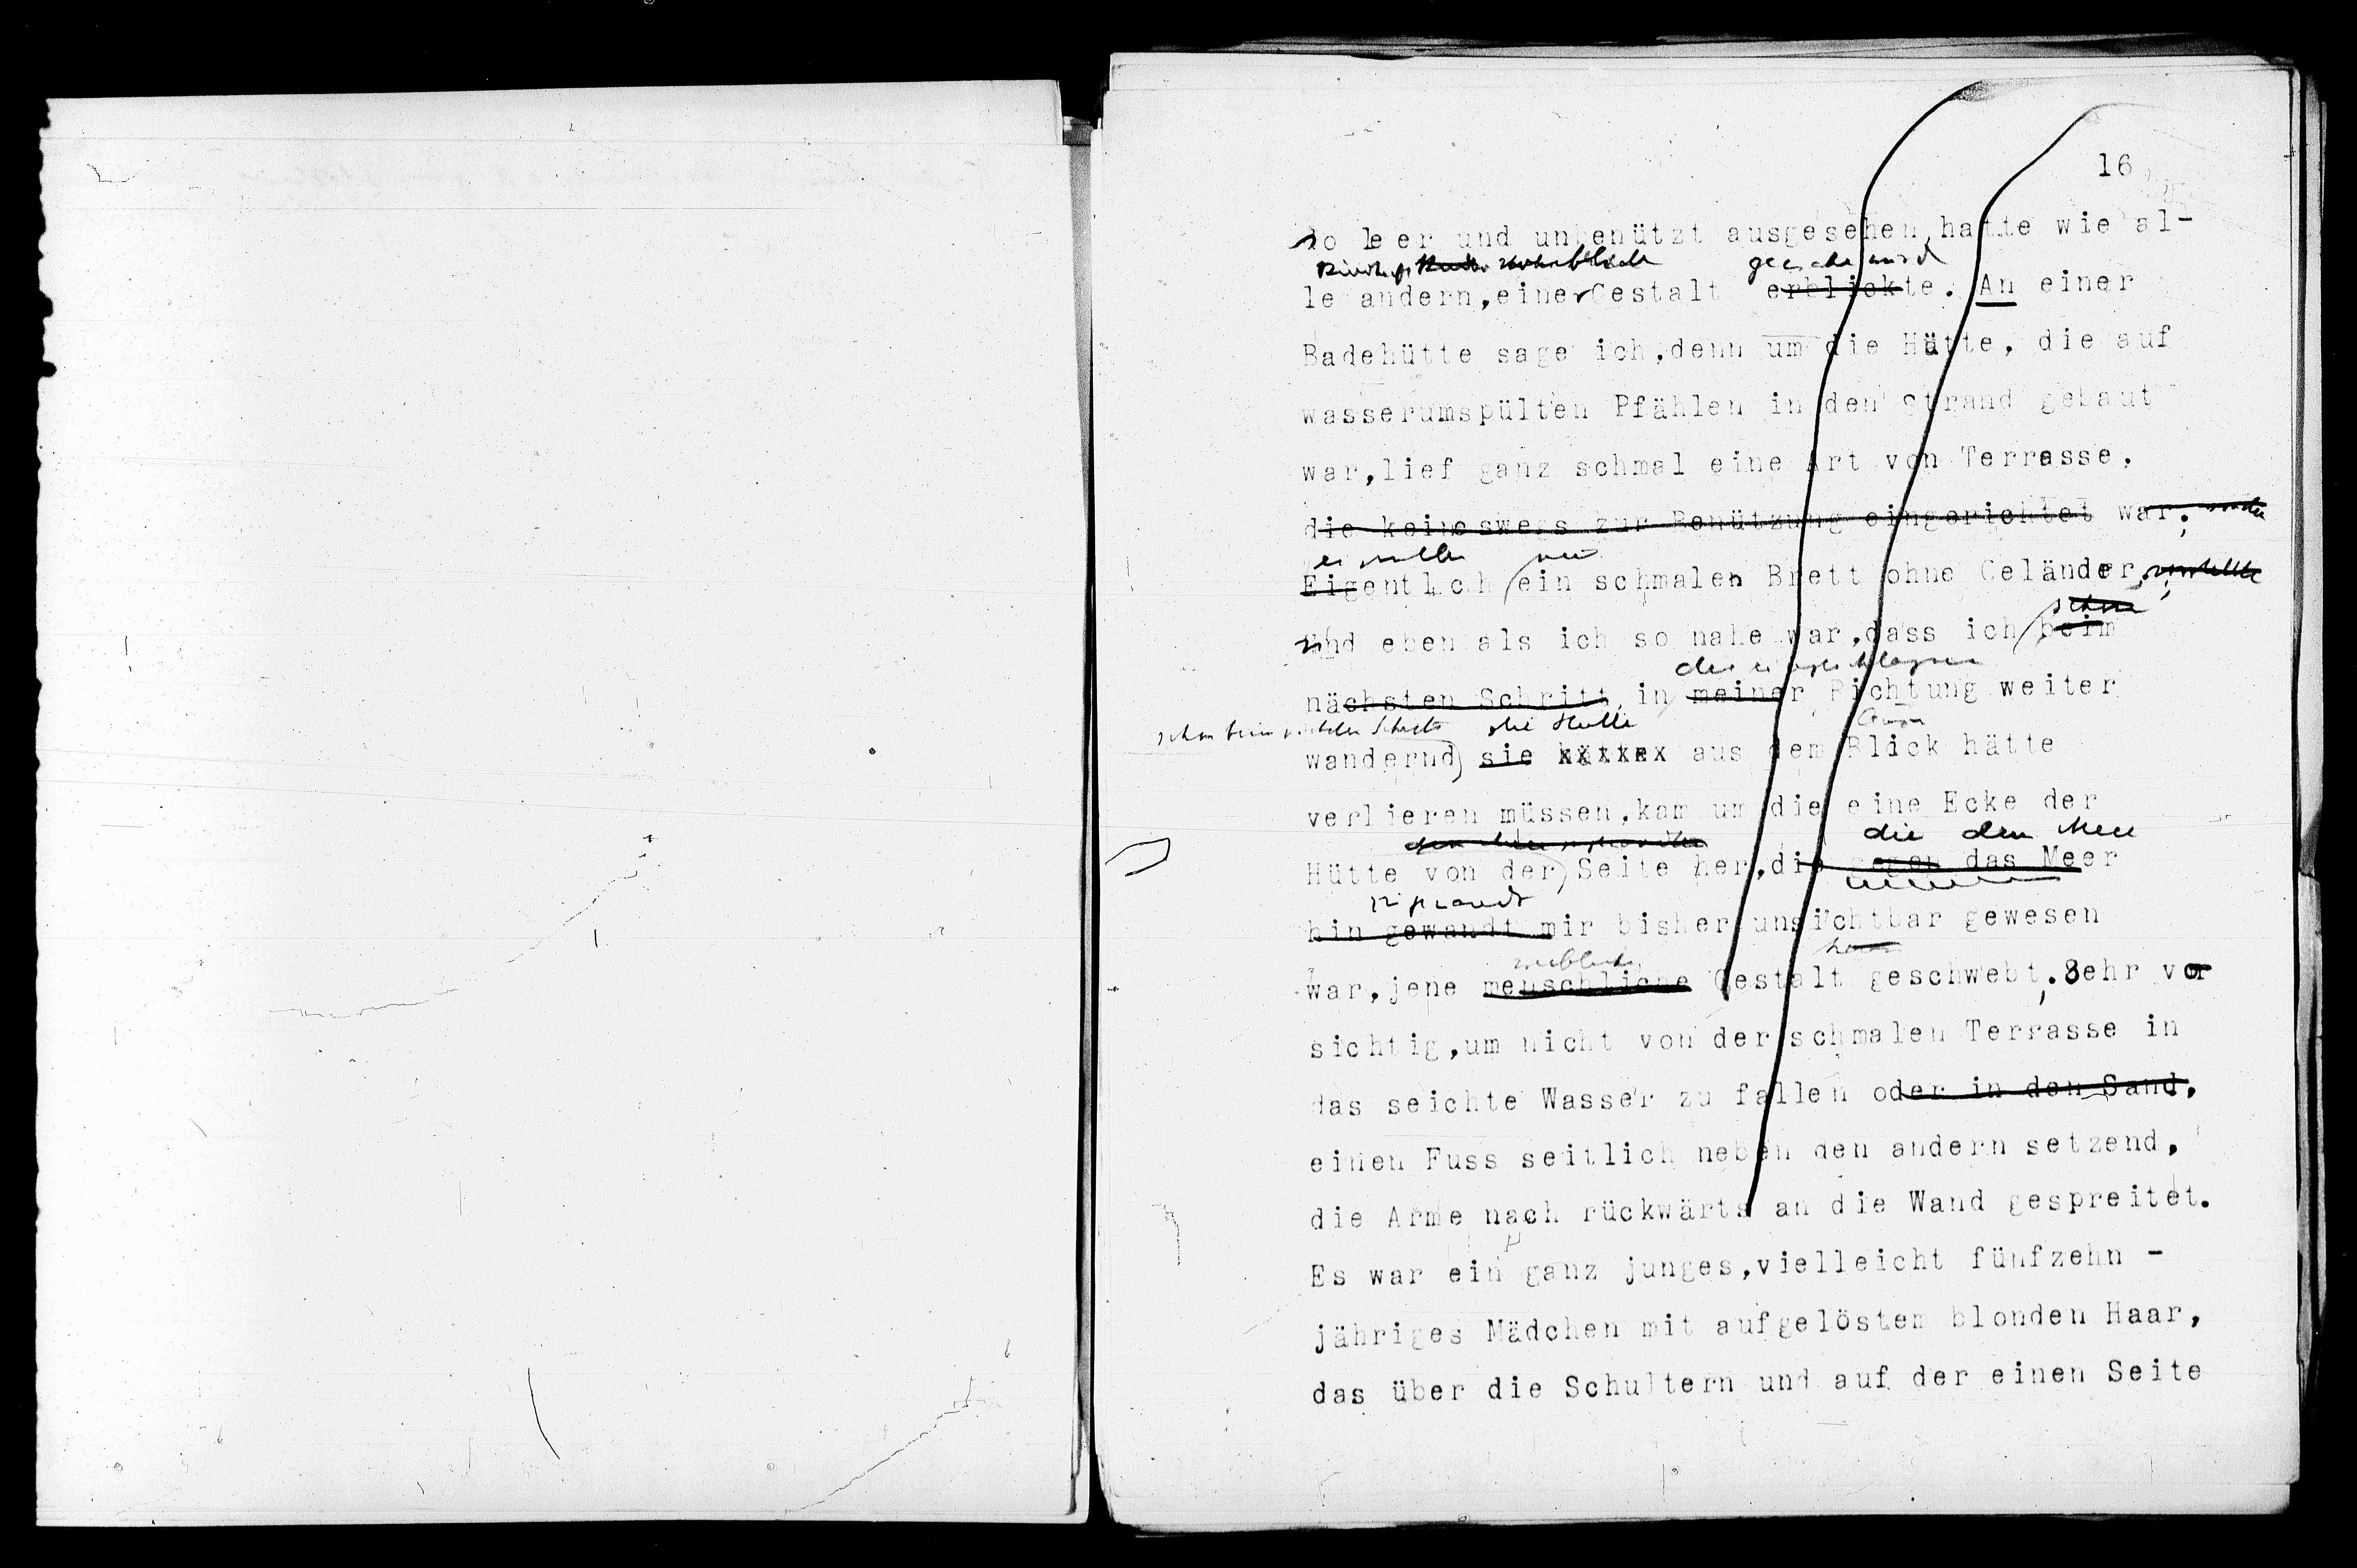 16
so leer und unbenützt ausgesehen hatte wie al-
le andern, einer Gestalt erblickte. An einer
Badehütte sage ich, denn um die Hütte, die auf
wasserumspülten Pfählen in den Strand gebaut
war, lief ganz schmal eine Art von Terrasse,
die keineswegs zur Benützung eingerichtet war;
nur
Eigentlich ein schmales Brett ohne Geländer,
schon
und eben als ich so nahe war, dass ich beim
der eingeschlagenen
nächsten Schritt, in meiner Richtung weiter
schon beim nächsten Schritt die Hütte
wandernd sie hätte aus dem Blick hätte
verlieren müssen, kam um die eine Ecke der
die dem Meer
Hütte von der Seite her, die gegen das Meer
zugewandt
hin gewandt mir bisher unsichtbar gewesen
weibliche
war, jene menschliche Gestalt geschwebt. Sehr vor
sichtig, um nicht von der schmalen Terrasse in
das seichte Wasser zu fallen oder in den Sand,
einen Fuss seitlich neben den andern setzend,
die Arme nach rückwärts an die Wand gespreitet.
Es war ein ganz junges, vielleicht fünfzehn -
jähriges Mädchen mit aufgelöstem blonden Haar,
das über die Schultern und auf der einen Seite